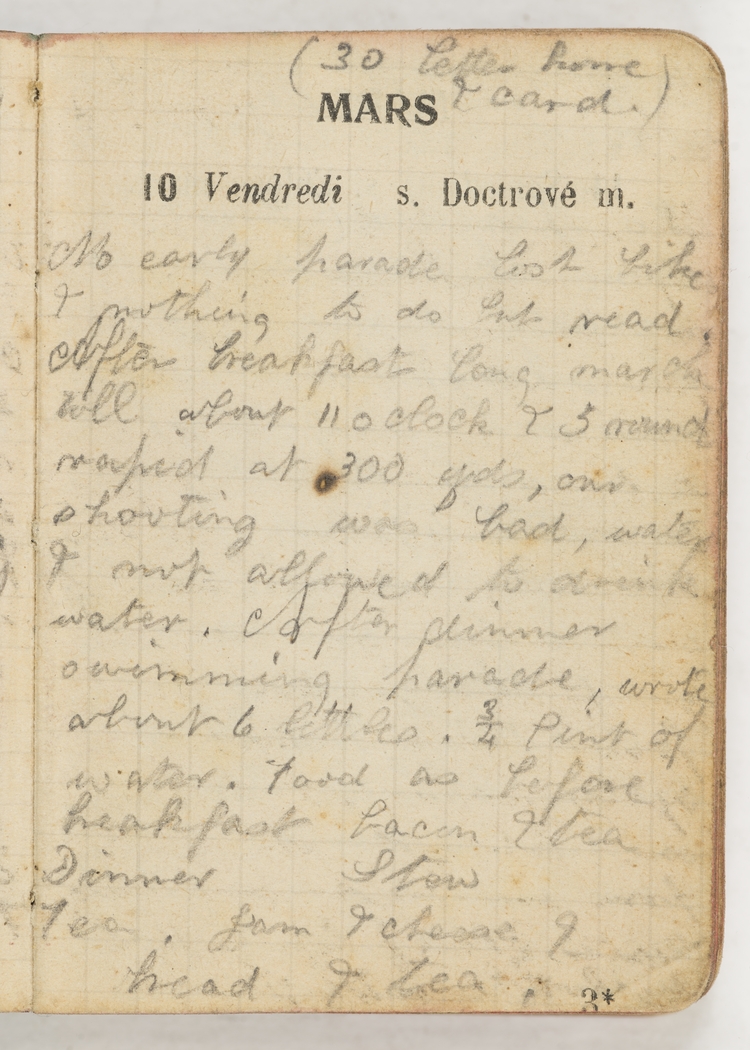 (30 letter home
& card.)
MARS
10 Vendredi s. Doctrové m.
No early parade lost bike
& nothing to do but read.
After breakfast long march
till about 11 oclock & 5 round
rapid at 300 yds, our
shooting was bad, water
& not allowed to drink
water. After dinner
swimming parade, wrote
about 6 letters. ¾ Pint of
water. Food as before
breakfast bacon & tea
Dinner Stew
Tea. Jam & cheese &
bread & tea.
3*